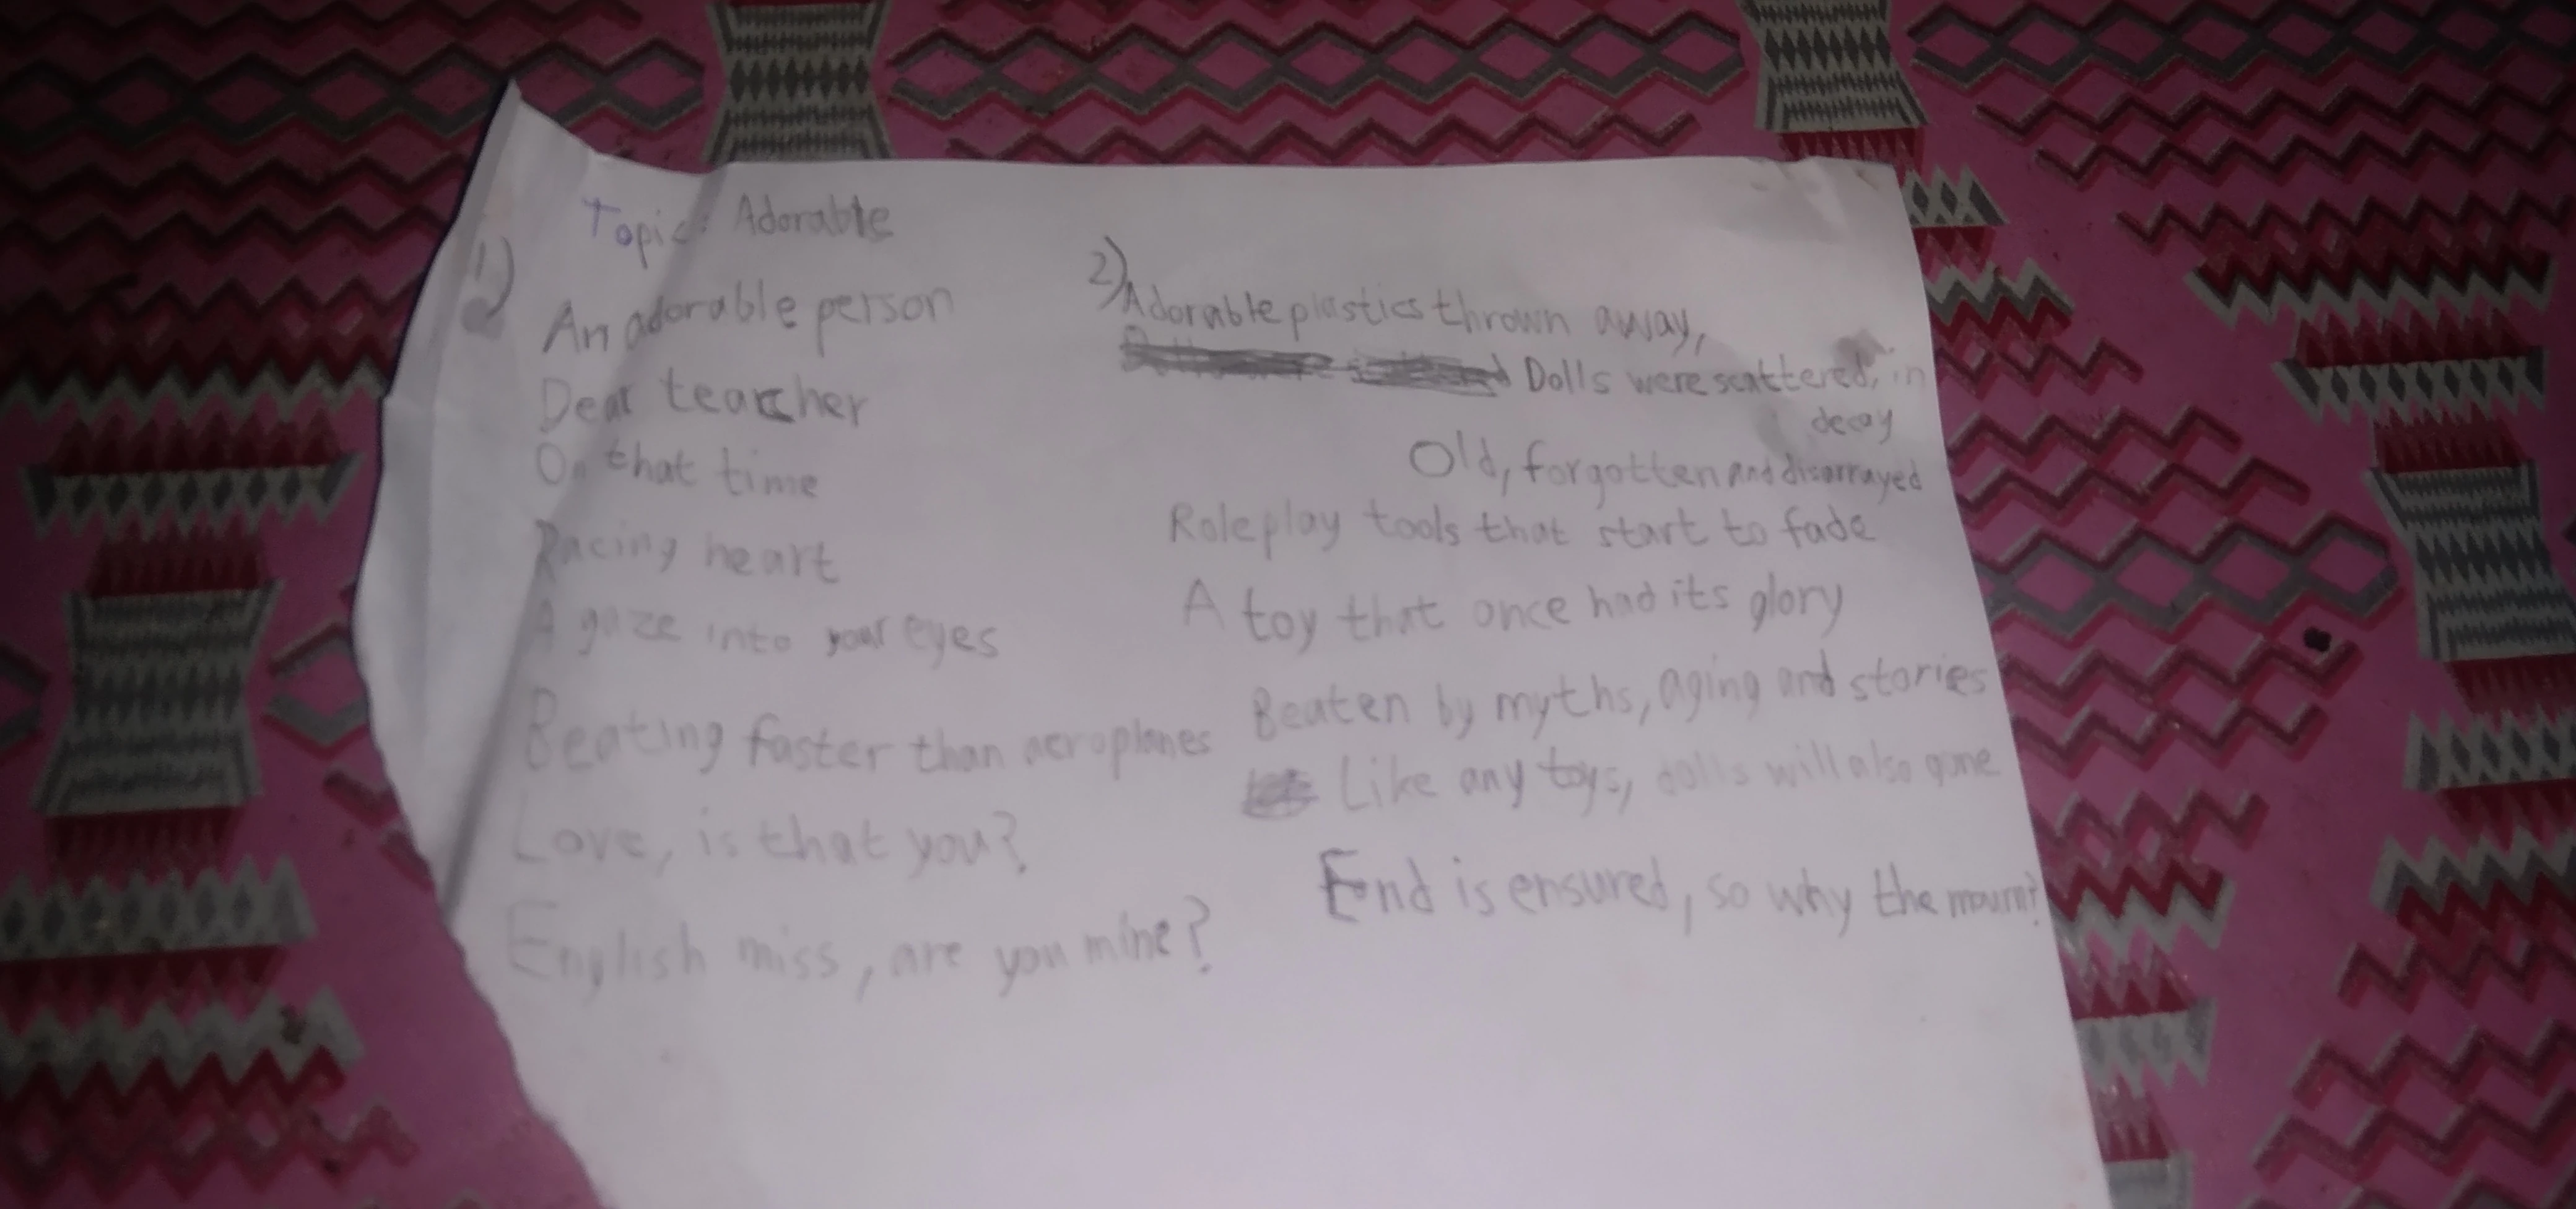 Topic: Adorable
1)
An adorable person
Dear tearcher
On that time
Racing heart
A gaze into your eyes
Beating faster than aeroplanes
Love, is that you?
English miss, are you mine?
2) Adorable plastics thrown away,
Dolls were scattered, in
decay
Old, forgotten and disarrayed
Roleplay tools that start to fade
A toy that once had its glory
Beaten by myths, aging and stories
Like any toys, dolls will also gone
End is ensured, so why the mourn?